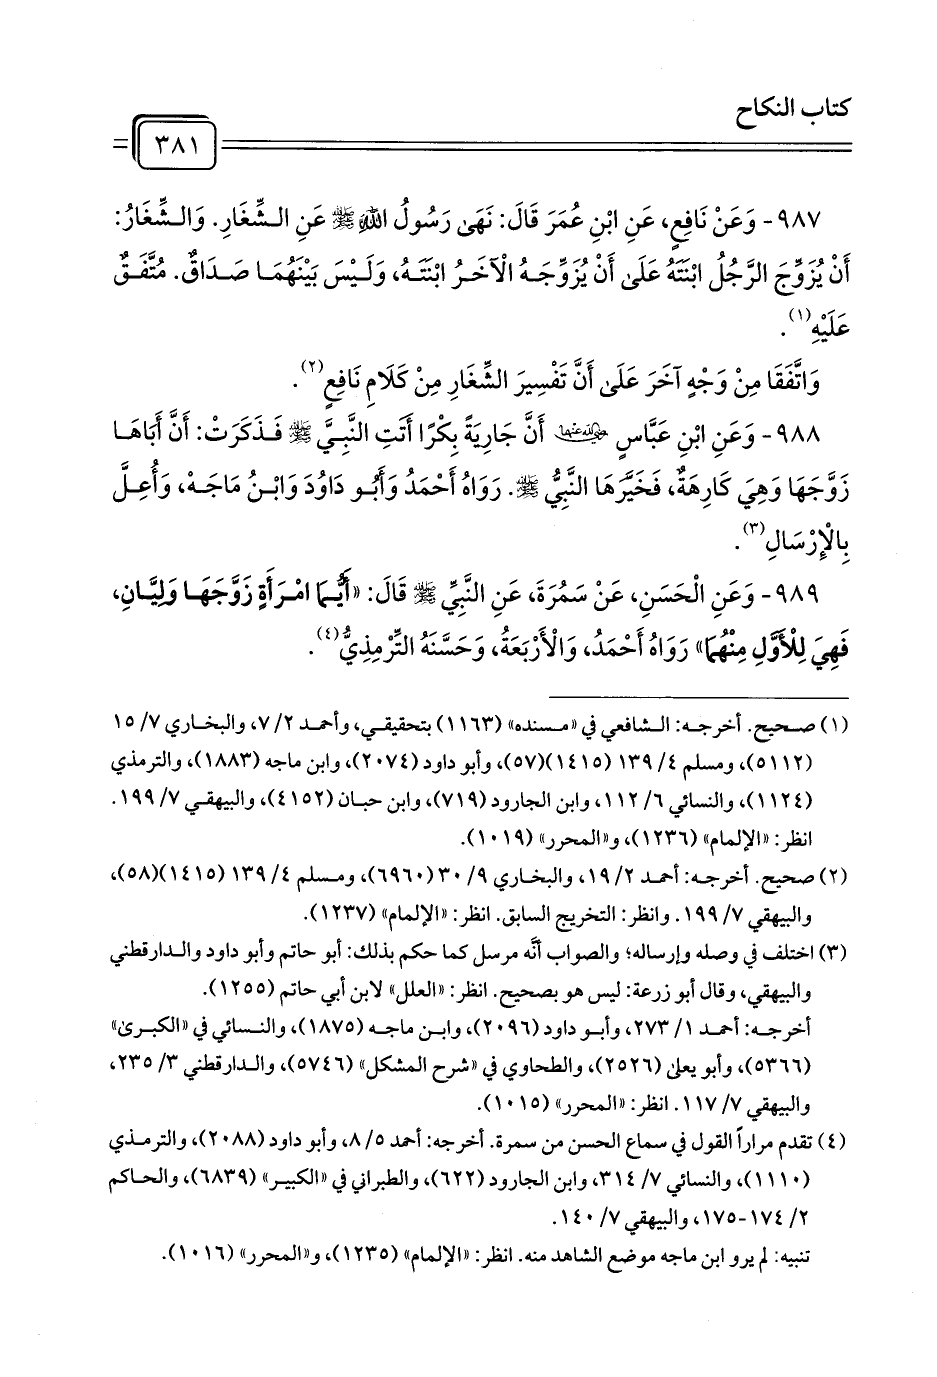 كتاب النكاح
٣٨١
٩٨٧- وَعَنْ نَافِعٍ، عَنِ ابْنِ عُمَرَ قَالَ: نَهَىٰ رَسُولُ اللَّهِ ﷺ عَنِ الشِّغَارِ. وَالشِّغَارُ:
أَنْ يُزَوِّجَ الرَّجُلُ ابْنَتَهُ عَلَىٰ أَنْ يُزَوِّجَهُ الْآخَرُ ابْنَتَهُ، وَلَيْسَ بَيْنَهُمَا صَدَاقٌ. مُتَّفَقٌ
عَلَيْهِ(١).
وَاتَّفَقَا مِنْ وَجْهٍ آخَرَ عَلَىٰ أَنَّ تَفْسِيرَ الشِّغَارِ مِنْ كَلَامِ نَافِعٍ(٢).
٩٨٨- وَعَنِ ابْنِ عَبَّاسٍ رضي الله عنهما أَنَّ جَارِيَةً بِكْرًا أَتَتِ النَّبِيَّ ﷺ فَذَكَرَتْ: أَنَّ أَبَاهَا
زَوَّجَهَا وَهِيَ كَارِهَةٌ، فَخَيَّرَهَا النَّبِيُّ ﷺ. رَوَاهُ أَحْمَدُ وَأَبُو دَاوُدَ وَابْنُ مَاجَهْ، وَأُعِلَّ
بِالْإِرْسَالِ(٣).
٩٨٩- وَعَنِ الْحَسَنِ، عَنْ سَمُرَةَ، عَنِ النَّبِيِّ ﷺ قَالَ: «أَيُّمَا امْرَأَةٍ زَوَّجَهَا وَلِيَّانِ،
فَهِيَ لِلْأَوَّلِ مِنْهُمَا» رَوَاهُ أَحْمَدُ، وَالْأَرْبَعَةُ، وَحَسَّنَهُ التِّرْمِذِيُّ(٤).
(١) صحيح. أخرجه: الشافعي في «مسنده» (١١٦٣) بتحقيقي، وأحمد ٢/ ٧، والبخاري ٧/ ١٥
(٥١١٢)، ومسلم ٤/ ١٣٩ (١٤١٥)(٥٧)، وأبو داود (٢٠٧٤)، وابن ماجه (١٨٨٣)، والترمذي
(١١٢٤)، والنسائي ٦/ ١١٢، وابن الجارود (٧١٩)، وابن حبان (٤١٥٢)، والبيهقي ٧/ ١٩٩.
انظر: «الإلمام» (١٢٣٦)، و«المحرر» (١٠١٩).
(٢) صحيح. أخرجه: أحمد ٢/ ١٩، والبخاري ٩/ ٣٠ (٦٩٦٠)، ومسلم ٤/ ١٣٩ (١٤١٥)(٥٨)،
والبيهقي ٧/ ١٩٩. وانظر: التخريج السابق. انظر: «الإلمام» (١٢٣٧).
(٣) اختلف في وصله وإرساله؛ والصواب أنَّه مرسل كما حكم بذلك: أبو حاتم وأبو داود والدارقطني
والبيهقي، وقال أبو زرعة: ليس هو بصحيح. انظر: «العلل» لابن أبي حاتم (١٢٥٥).
أخرجه: أحمد ١/ ٢٧٣، وأبو داود (٢٠٩٦)، وابن ماجه (١٨٧٥)، والنسائي في «الكبرىٰ»
(٥٣٦٦)، وأبو يعلىٰ (٢٥٢٦)، والطحاوي في «شرح المشكل» (٥٧٤٦)، والدارقطني ٣/ ٢٣٥،
والبيهقي ٧/ ١١٧. انظر: «المحرر» (١٠١٥).
(٤) تقدم مراراً القول في سماع الحسن من سمرة. أخرجه: أحمد ٥/ ٨، وأبو داود (٢٠٨٨)، والترمذي
(١١١٠)، والنسائي ٧/ ٣١٤، وابن الجارود (٦٢٢)، والطبراني في «الكبير» (٦٨٣٩)، والحاكم
٢/ ١٧٤-١٧٥، والبيهقي ٧/ ١٤٠.
تنبيه: لم يرو ابن ماجه موضع الشاهد منه. انظر: «الإلمام» (١٢٣٥)، و«المحرر» (١٠١٦).